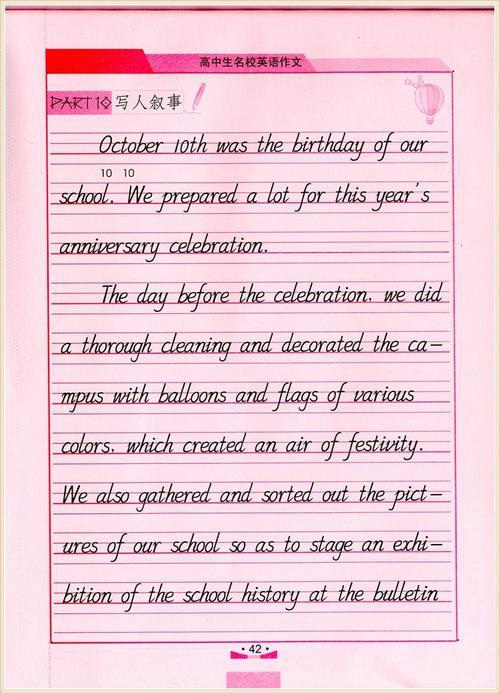 高中生名校英语作文
PART 10 写人叙事
October 10th was the birthday of our
10 10
school. We prepared a lot for this year's
anniversary celebration.
The day before the celebration, we did
a thorough cleaning and decorated the ca-
mpus with balloons and flags of various
colors, which created an air of festivity.
We also gathered and sorted out the pict-
ures of our school so as to stage an exhi-
bition of the school history at the bulletin
• 42 •